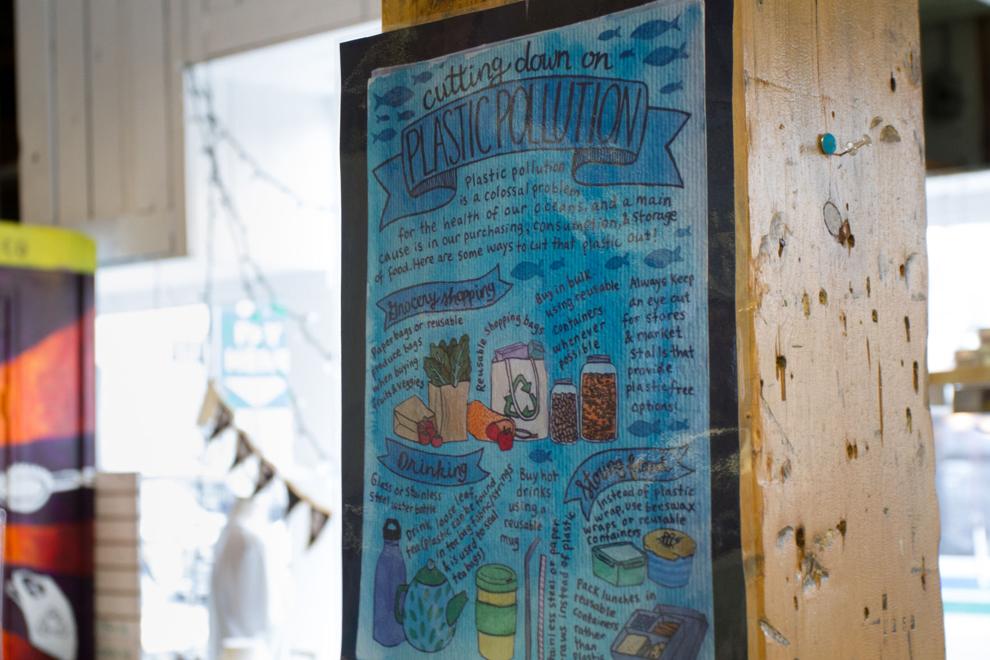 cutting down on
PLASTIC POLLUTION
Plastic pollution
is a colossal problem
for the health of our oceans, and a main
cause is in our purchasing, consumption, & storage
of food. Here are some ways to cut that plastic out!
Grocery shopping
Paper bags or reusable
produce bags
when buying
fruits & veggies
Reusable shopping bags
Buy in bulk
using reusable
containers
whenever
possible
Always keep
an eye out
for stores
& market
stalls that
provide
plastic free
options!
Drinking
Glass or stainless
steel water bottle
Drink loose leaf
tea (plastic can be found
in tea bag fabric/strings
& is used to seal
tea bags)
Buy hot
drinks
using a
reusable
mug
stainless steel or paper
straws instead of plastic
Storing food
Instead of plastic
wrap, use beeswax
wraps or reusable
containers
Pack lunches in
reusable
containers
rather
than
plastic